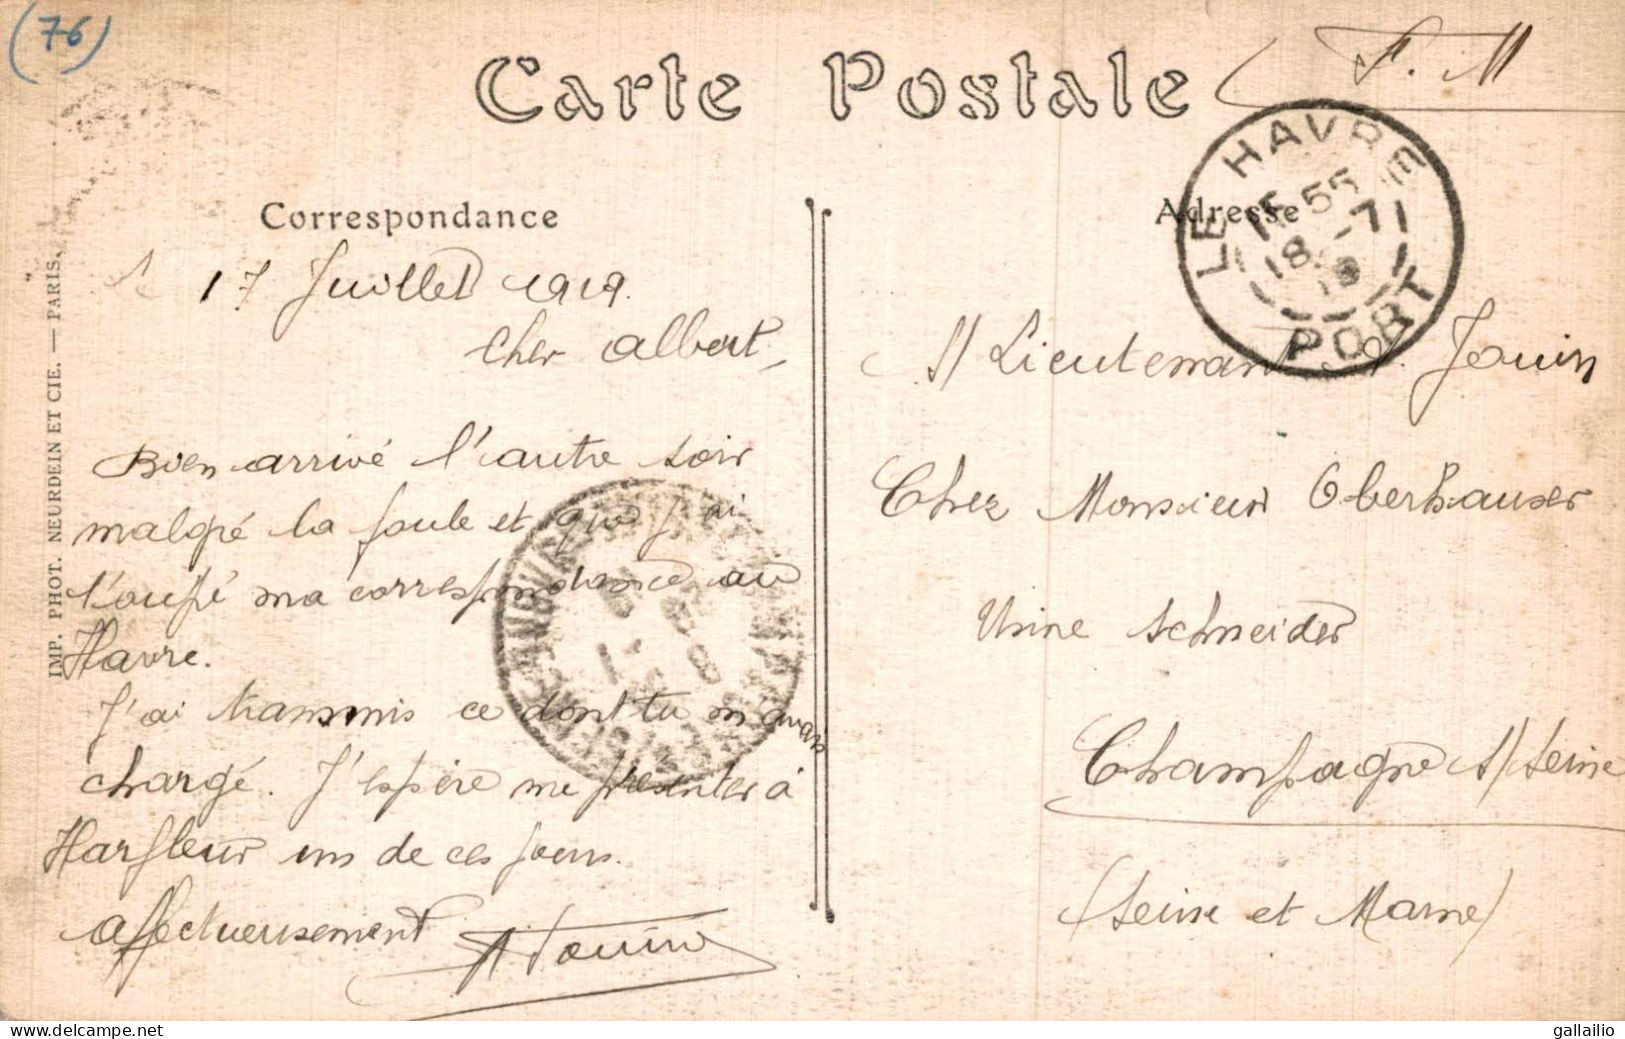 (76)
Carte Postale
F. M
LE HAVRE
PORT
18-7
19
Correspondance
Adresse
IMP. PHOT. NEURDEIN ET CIE. — PARIS.
17 Juillet 1919.
Cher Albert,
Bien arrivé l'autre soir
malgré la foule et que j'ai
loupé ma correspondance au
Havre.
J'ai transmis ce dont tu m'avais
chargé. J'espère me présenter à
Harfleur un de ces jours.
Affectueusement
Jouin
S/Lieutenant A. Jouin
Chez Monsieur Oberhauser
Usine Schneider
Champagne s/Seine
(Seine et Marne)
gallailio